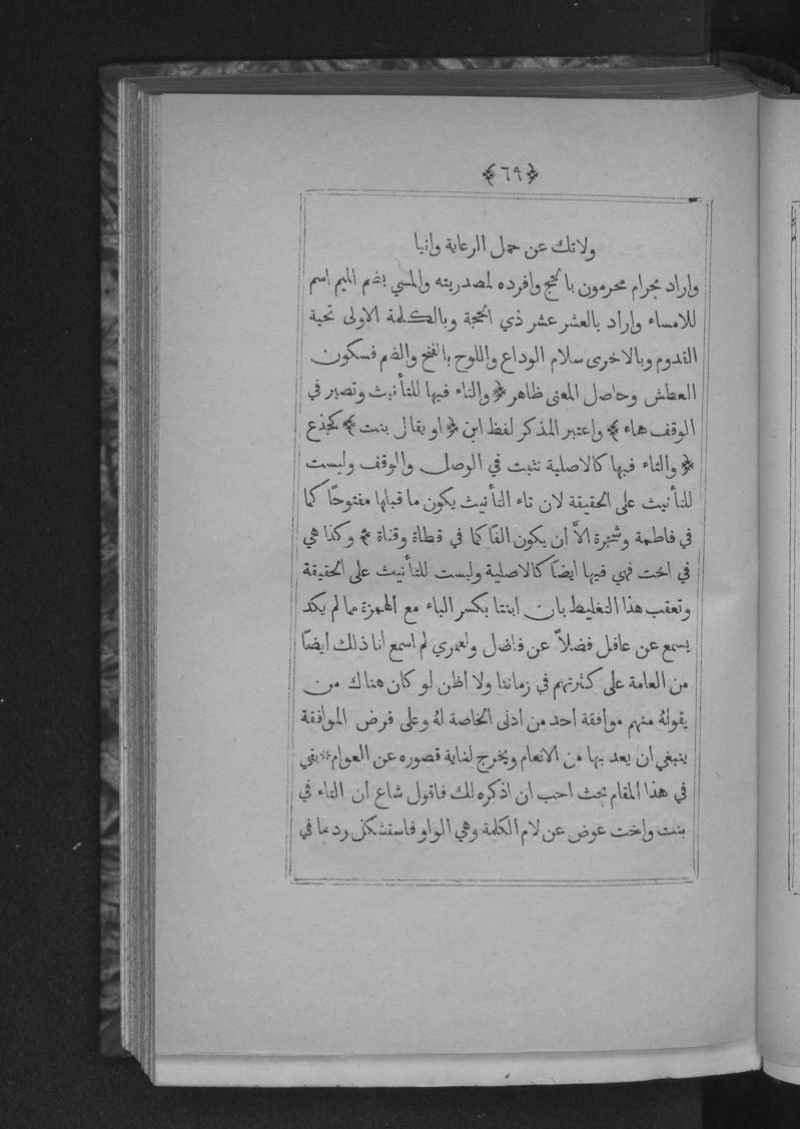 ﴿٦٩﴾
ولاتك عن حمل الرعاية وانيا
واراد بحرام محرمون بالحج وافرده لمصدريته والمسي بضم الميم اسم
للامساء واراد بالعشر عشر ذي الحجة وبالكلمة الاولى تحية
القدوم وبالاخرى سلام الوداع واللوح بالفتح والضم فسكون
العطش وحاصل المعنى ظاهر ﴿ والتاء فيها للتأنيث وتصير في
الوقف هاء ﴾ واعتبر المذكر لفظ ابن ﴿ او يقال بنت ﴾ كجذع
﴿ والتاء فيها كالاصلية نثبت في الوصل والوقف وليست
للتأنيث على الحقيقة لان تاء التأنيث يكون ما قبلها مفتوحًا كما
في فاطمة وشجرة الاَّ ان يكون الفًا كما في قطاة وقناة ﴾ وكذا هي
في اخت فهي فيها ايضًا كالاصلية وليست للتأنيث على الحقيقة
وتعقب هذا التغليط بان ابنتا بكسر الباء مع الهمزة مما لم يكد
يسمع عن عاقل فضلاً عن فاضل ولعمري لم اسمع انا ذلك ايضًا
من العامة على كثرتهم في زماننا ولا اظن لو كان هناك من
يقولهُ منهم موافقة احد من ادنى الخاصة لهُ وعلى فرض الموافقة
ينبغي ان يعد بها من الانعام ويخرج لغاية قصوره عن العوام * بقي
في هذا المقام بحث احب ان اذكره لك فاقول شاع ان التاء في
بنت واخت عوض عن لام الكلمة وهي الواو فاستشكل ردها في